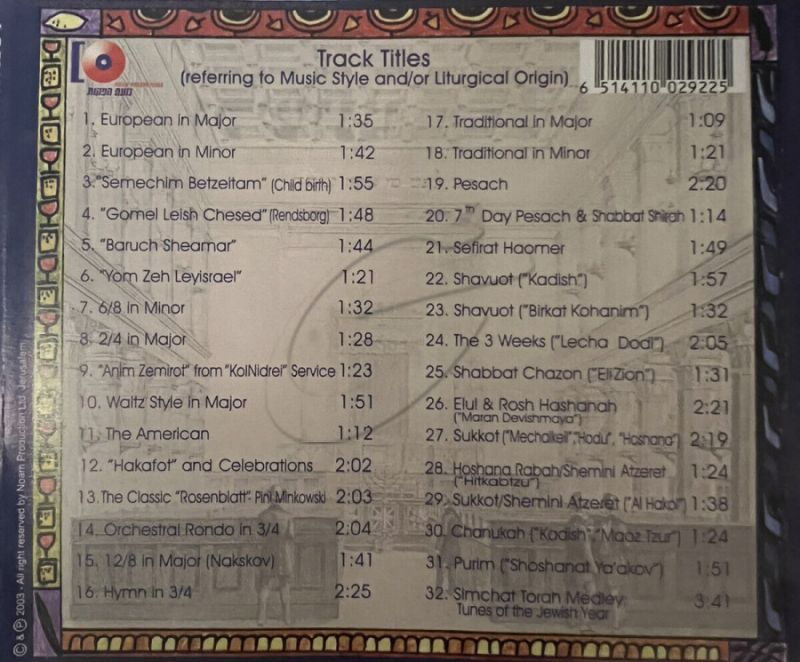 Track Titles
(referring to Music Style and/or Liturgical Origin)
נועם הפקות
6 514110 029225
1. European in Major 1:35
2. European in Minor 1:42
3. "Semechim Betzeitam" (Child birth) 1:55
4. "Gomel Leish Chesed" (Rendsborg) 1:48
5. "Baruch Sheamar" 1:44
6. "Yom Zeh Leyisrael" 1:21
7. 6/8 in Minor 1:32
8. 2/4 in Major 1:28
9. "Anim Zemirot" from "KolNidrei" Service 1:23
10. Waltz Style in Major 1:51
11. The American 1:12
12. "Hakafot" and Celebrations 2:02
13. The Classic "Rosenblatt" Pini Minkowski 2:03
14. Orchestral Rondo in 3/4 2:04
15. 12/8 in Major (Nakskov) 1:41
16. Hymn in 3/4 2:25
17. Traditional in Major 1:09
18. Traditional in Minor 1:21
19. Pesach 2:20
20. 7th Day Pesach & Shabbat Shirah 1:14
21. Sefirat Haomer 1:49
22. Shavuot ("Kadish") 1:57
23. Shavuot ("Birkat Kohanim") 1:32
24. The 3 Weeks ("Lecha Dodi") 2:05
25. Shabbat Chazon ("EliZion") 1:31
26. Elul & Rosh Hashanah 2:21
("Maran Devishmaya")
27. Sukkot ("Mechalkeil","Hodu", "Hoshana") 2:19
28. Hoshana Rabah/Shemini Atzeret 1:24
("Hitkabtzu")
29. Sukkot/Shemini Atzeret ("Al Hakol") 1:38
30. Chanukah ("Kadish","Maoz Tzur") 1:24
31. Purim ("Shoshanat Ya'akov") 1:51
32. Simchat Torah Medley 3:41
Tunes of the Jewish Year
© & ℗ 2003 - All right reserved by Noam Production Ltd. Jerusalem